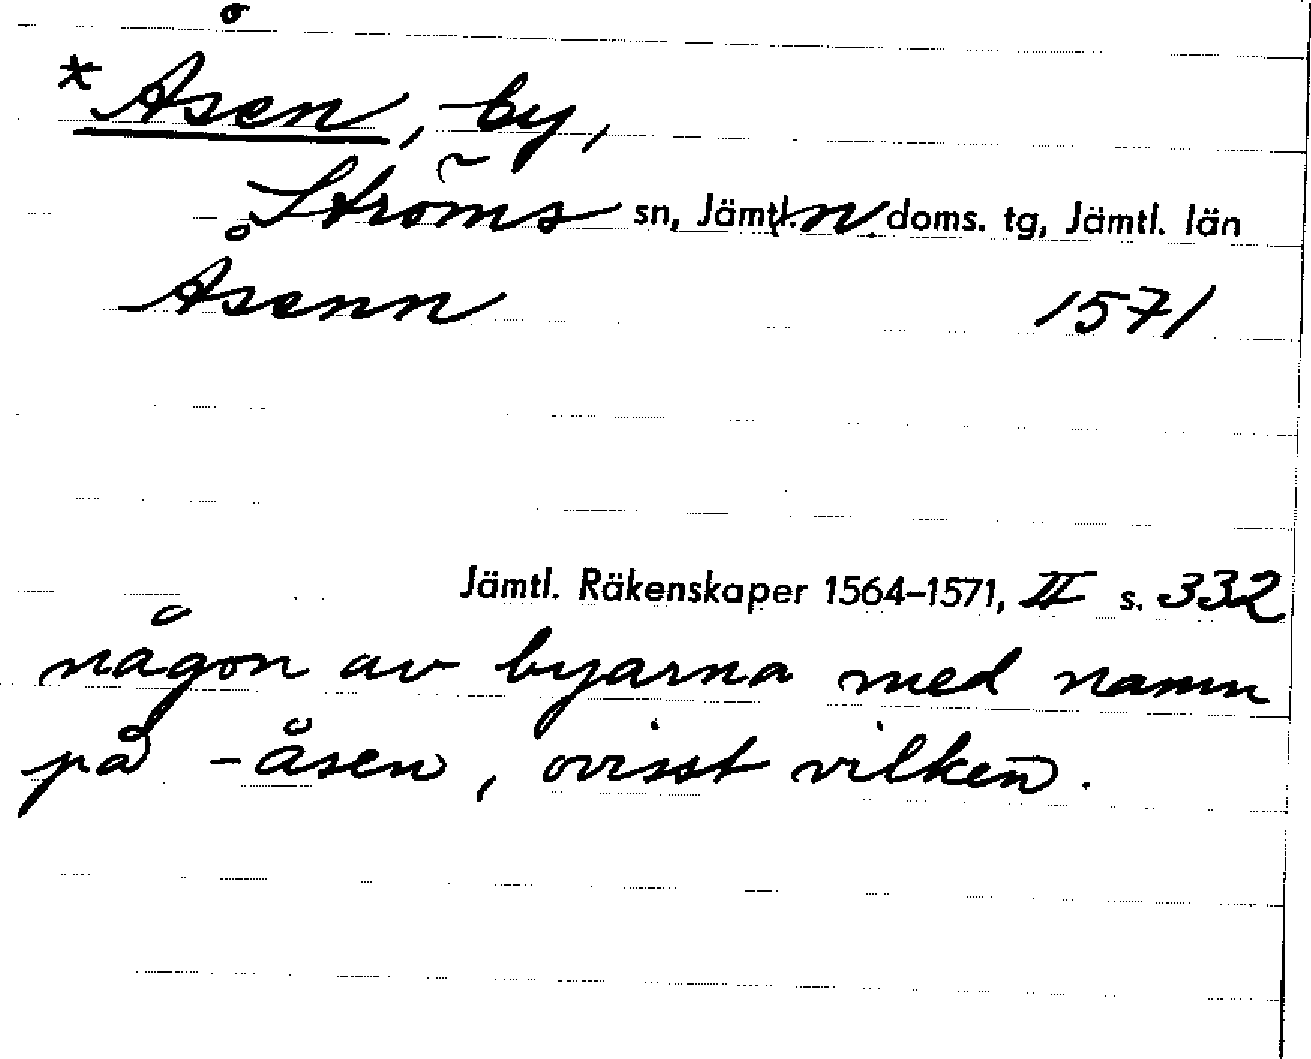 *Åsen, by,
Ströms sn, Jämtl. n. doms. tg, Jämtl. län
Åsenn 1571
Jämtl. Räkenskaper 1564–1571, II s. 332
någon av byarna med namn
på -åsen, ovisst vilken.